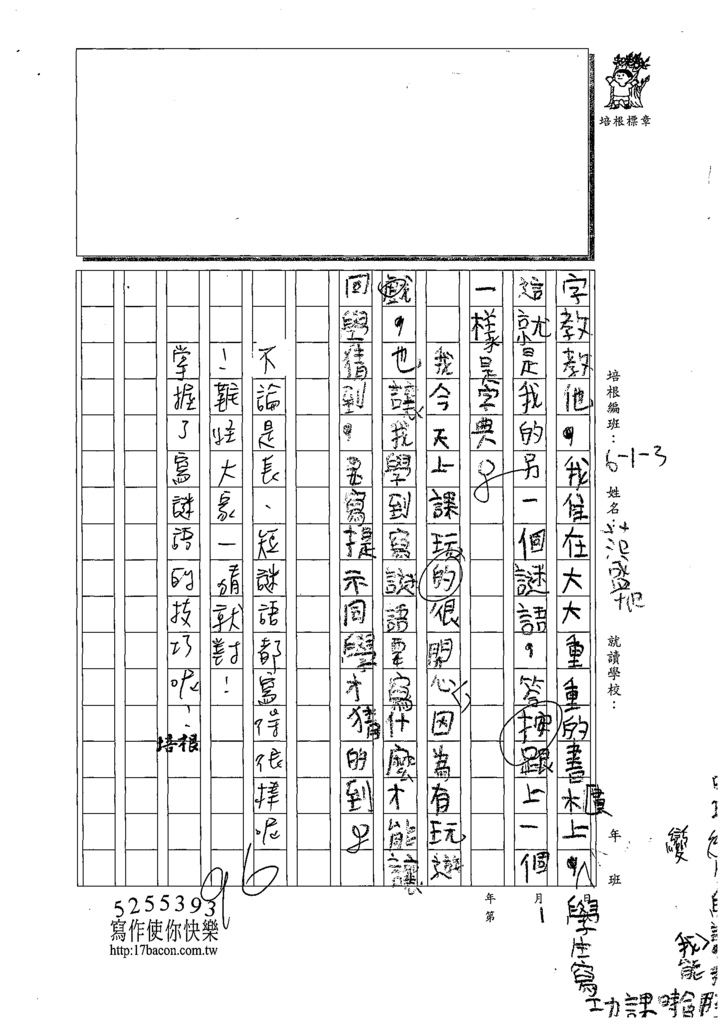 培根標章
培根編班：6-1-3 姓名 就讀學校： 年 班
字教教他，我住在大大重重的書櫃上，
這就是我的另一個謎語，答按跟上一個
一樣是字典。
我今天上課玩的很開心，因為有玩遊
戲，也讓我學到寫謎語要寫什麼才能讓
同學猜到，要寫提示同學才猜的到。
不論是長、短謎語都寫得很棒呢
！難怪大家一猜就對！
掌握了寫謎語的技巧呢！
培根
96
學生寫
功課時會
變
我能
年 月 1
第
5255393
寫作使你快樂
http:17bacon.com.tw